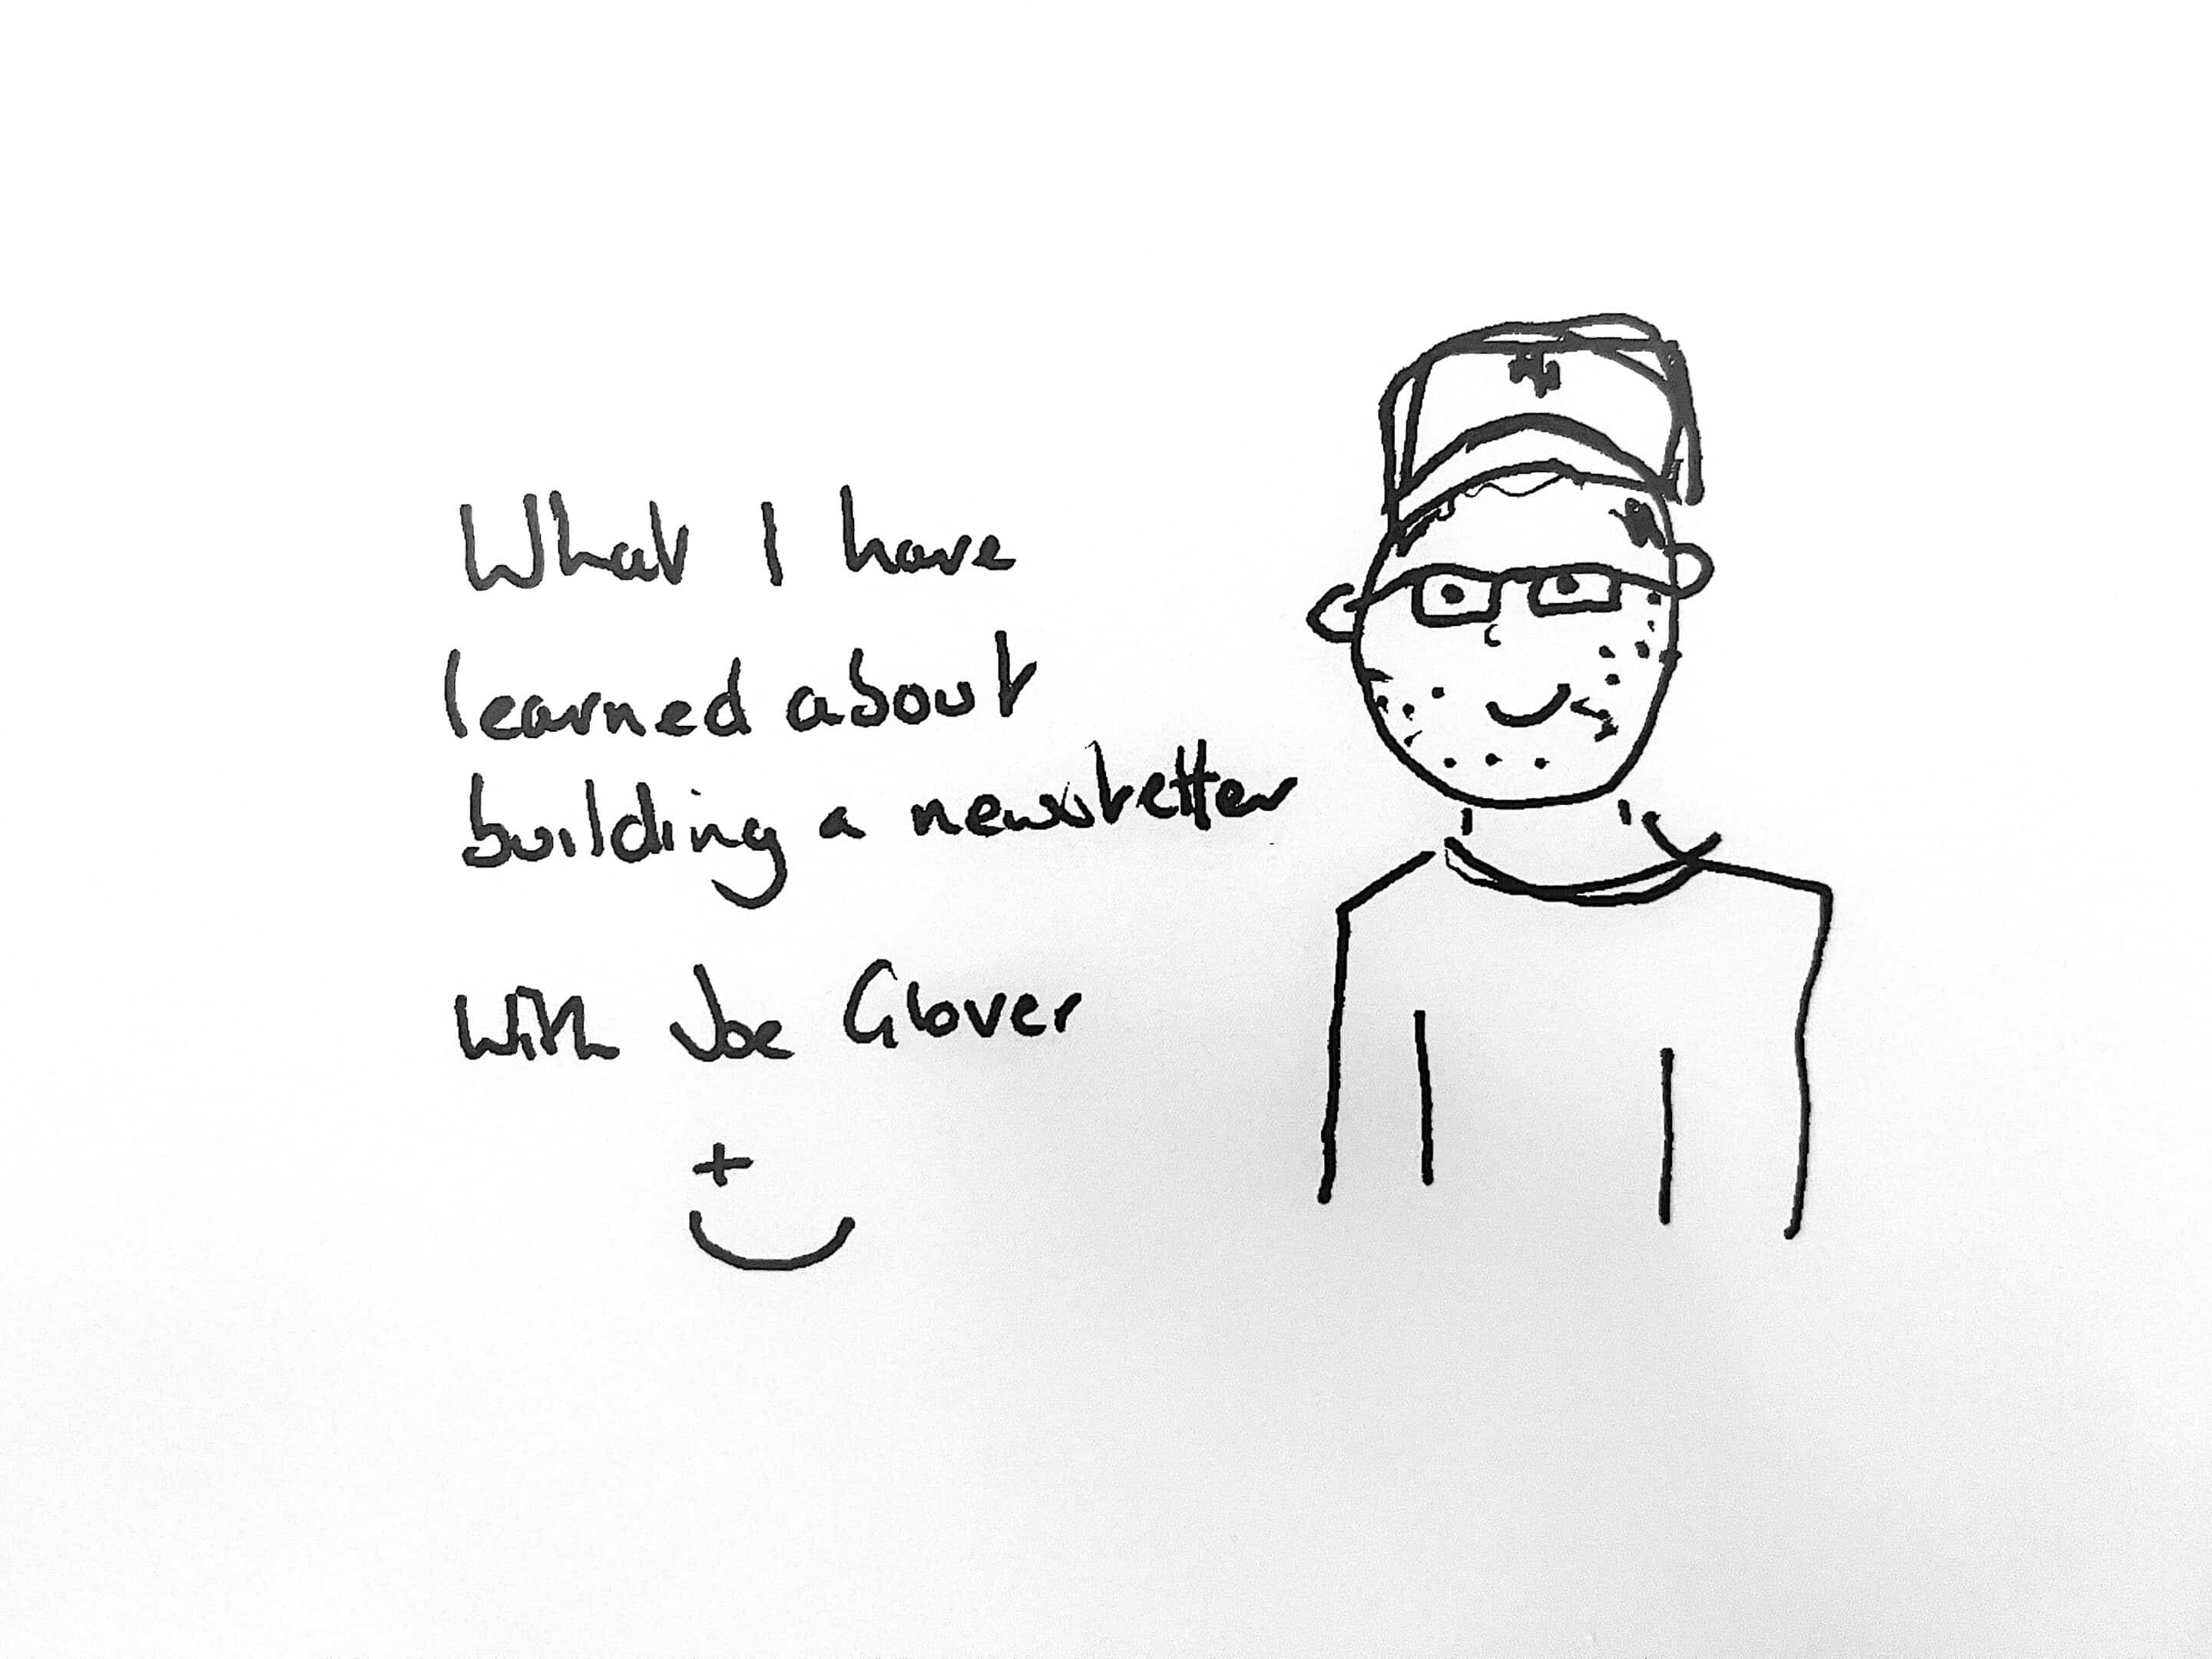 What I have
learned about
building a newsletter
with Joe Glover
+